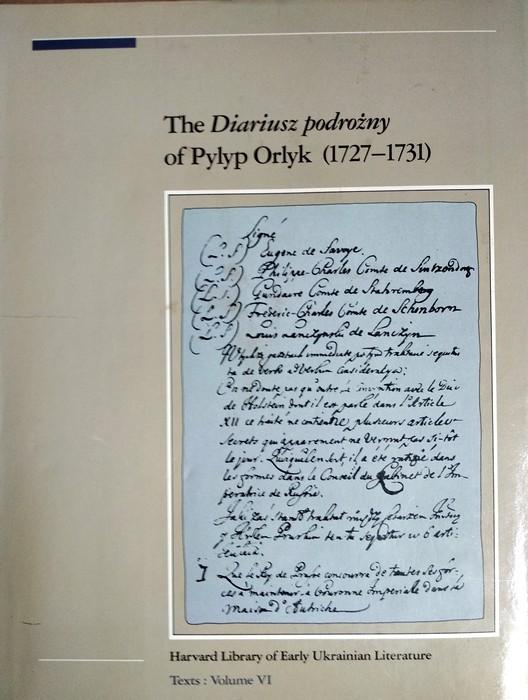 The Diariusz podrożny
of Pylyp Orlyk (1727–1731)
Signé
(L.S) Eugene de Savoye.
(L.S) Philippe-Charles Comte de Sintzendorg
(L.S.) Gundaire Comte de Stahremberg
(L.S) Frederic-Charles Comte de Schenborn
(L.S) Louis Lanczynski de Lanczyn
immediate traktacie
de verbo ad verbum
On ne doute pas qu'outre la avec le Duc
de Holstein dont il est parlé dans l'Article
XII ce traité ne contienne plusieurs articles
secrets qui apparement ne verront pas si-tôt
le jour. il a été ratifié dans
les formes dans le Conseil du Cabinet de l'Im-
peratrice de Russie.
traktat
w 6 arti-
I Que le Roy de Prusse concourra de toutes ses for-
ces a maintenir la Couronne Imperiale dans la
maison d'Autriche
Harvard Library of Early Ukrainian Literature
Texts : Volume VI